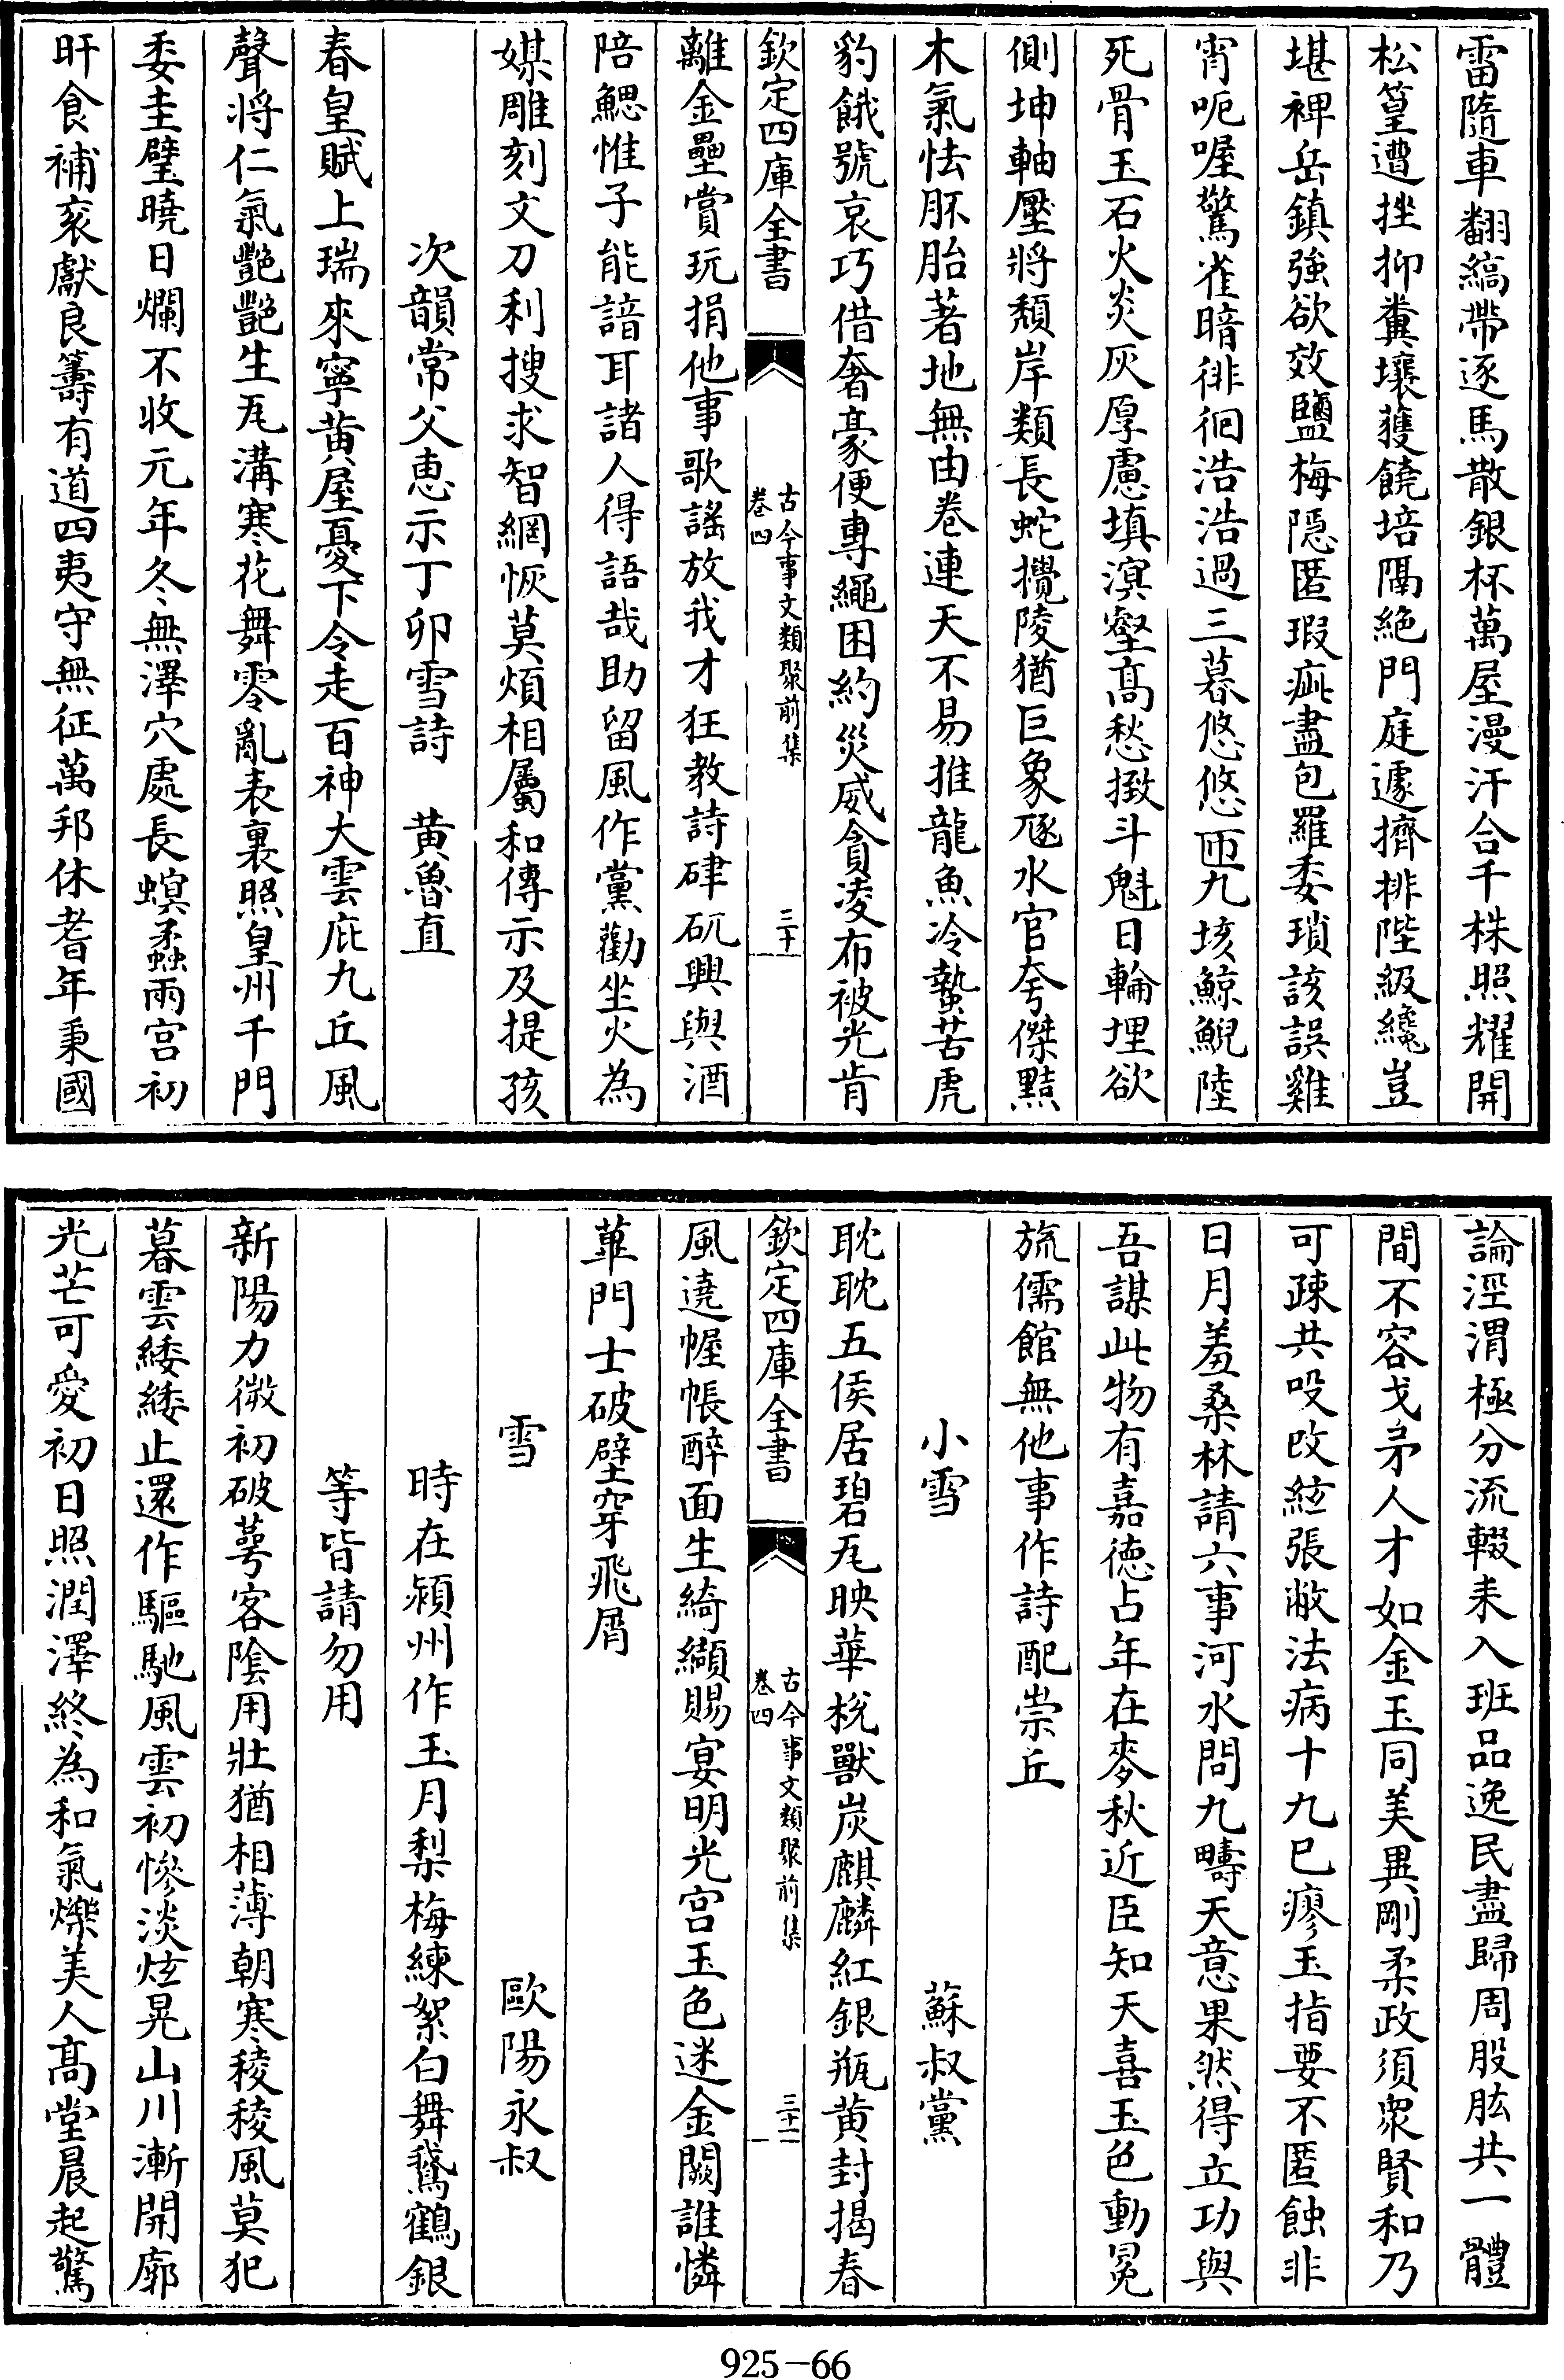 雷隨車翻縞帶逐馬散銀杯萬屋漫汗合千株照耀開
松篁遭挫抑糞壤獲饒培隔絶門庭遽擠排陛級纔豈
堪裨岳鎮強欲效鹽梅隠匿瑕疵盡包羅委瑣該誤雞
宵呃喔驚雀暗徘徊浩浩過三暮悠悠匝九垓鯨鯢陸
死骨玉石火炎灰厚慮填溟壑髙愁㨖斗魁日輪埋欲
側坤軸壓將頽岸類長蛇攪陵猶巨象豗水官夸傑黠
木氣怯胚胎著地無由卷連天不易推龍魚冷蟄苦虎
豹餓號哀巧借奢豪便專繩困約災威貪凌布被光肯
欽定四庫全書
古今事文類聚前集
卷四
三十一
離金罍賞玩捐他事歌謠放我才狂教詩硉矹興與酒
陪鰓惟子能諳耳諸人得語哉助留風作黨勸坐火為
媒雕刻文刀利搜求智網恢莫煩相屬和傳示及提孩
次韻常父恵示丁卯雪詩 黄魯直
春皇賦上瑞來寧黄屋憂下令走百神大雲庇九丘風
聲将仁氣艶艶生瓦溝寒花舞零亂表裏照皇州千門
委圭璧曉日爛不收元年冬無澤穴處長螟蟊兩宮初
旰食補衮獻良籌有道四夷守無征萬邦休耆年秉國
論涇渭極分流輟耒入班品逸民盡歸周股肱共一體
間不容戈矛人才如金玉同美異剛柔政須衆賢和乃
可疎共吺改絃張敝法病十九已瘳玉指要不匿蝕非
日月羞桑林請六事河水問九疇天意果然得立功與
吾謀此物有嘉德占年在麥秋近臣知天喜玉色動冕
旒儒館無他事作詩配崇丘
小雪 蘇叔黨
耽耽五侯居碧瓦映華梲獸炭麒麟紅銀瓶黄封揭春
欽定四庫全書
古今事文類聚前集
卷四
三十二
風遶幄帳醉面生綺纈賜宴明光宫玉色迷金闕誰憐
蓽門士破壁穿飛屑
雪 歐陽永叔
時在潁州作玉月梨梅練絮白舞鵞鶴銀
等皆請勿用
新陽力微初破萼客陰用壯猶相薄朝寒稜稜風莫犯
暮雲緌緌止還作驅馳風雲初慘淡炫晃山川漸開廓
光芒可愛初日照潤澤終為和氣爍美人髙堂晨起驚
925-66